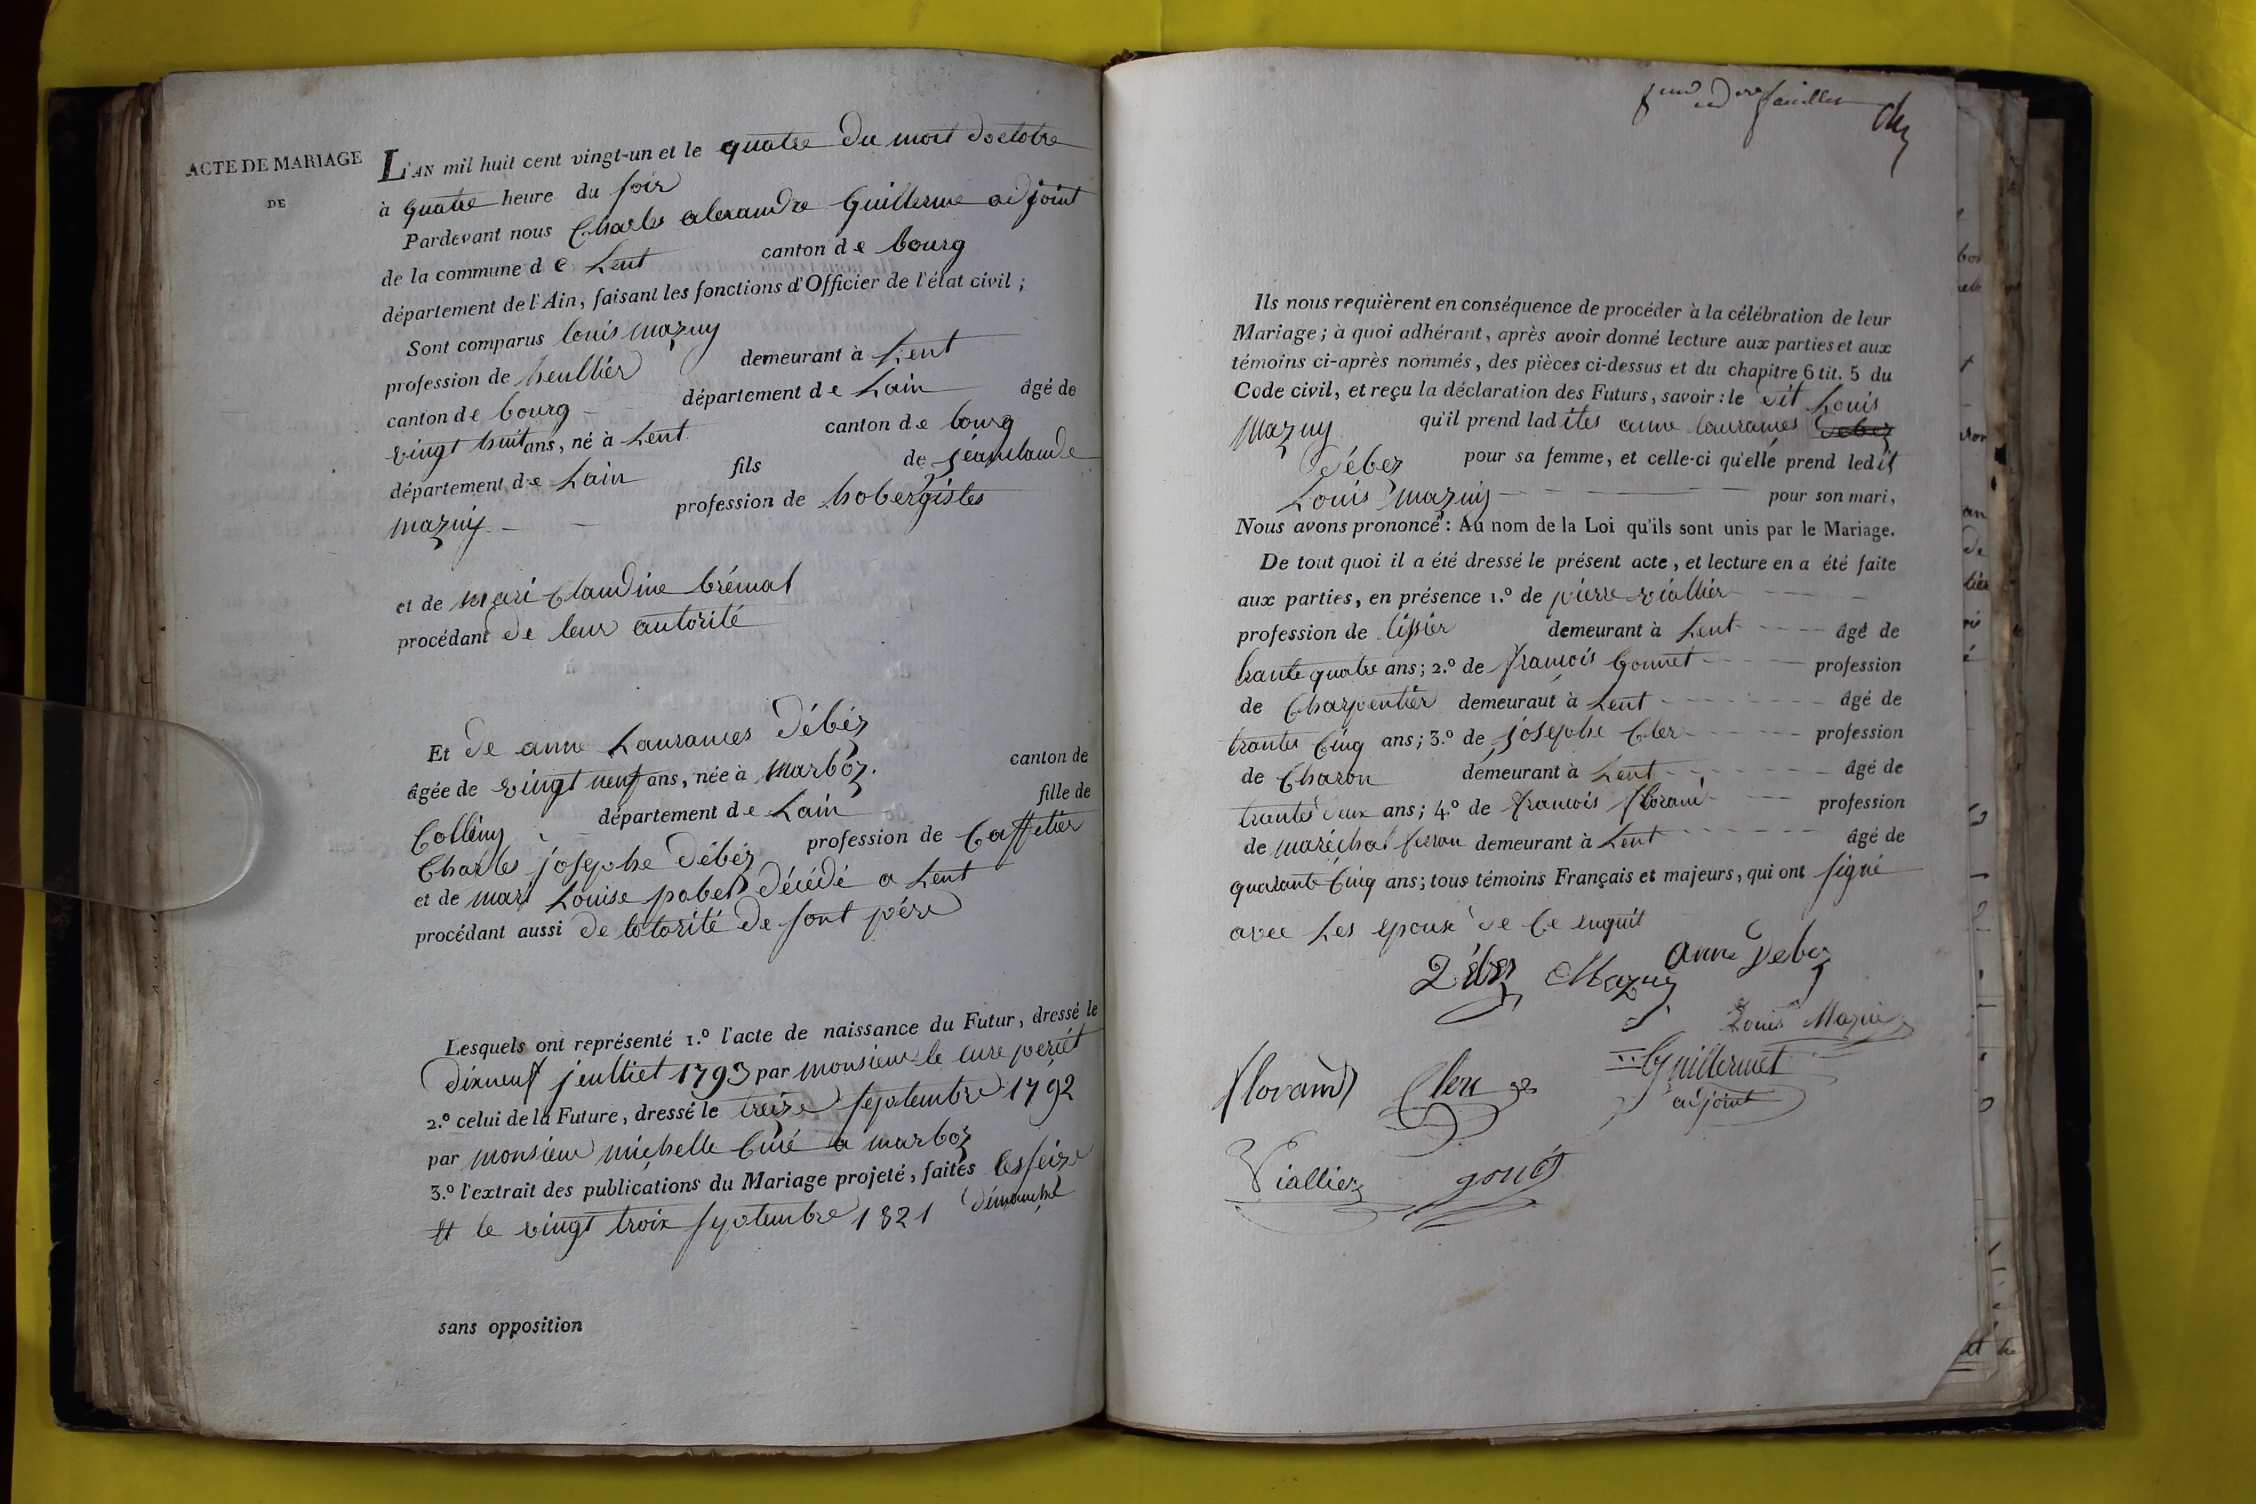 ACTE DE MARIAGE
DE
L'AN mil huit cent vingt-un et le quatre du mois doctobre
à quatre heure du soir
Pardevant nous Charles alexandre Guillerme adjoint
de la commune de Lent canton de bourg
département de l'Ain, faisant les fonctions d'Officier de l'état civil ;
Sont comparus louis mazuy
profession de heullier demeurant à Lent
canton de bourg département de Lain âgé de
vingt huit ans, né à Lent canton de bourg
département de Lain fils de jéanclaude
mazuy profession de hobergistes
et de mari Claudine brémal
procédant de leur autorité
Et de anne Laurances Débéz
âgée de vingt neuf ans, née à Marboz. canton de
Colleiny département de Lain fille de
Charles josephe Débéz profession de Caffetier
et de mari Louise pobel décédé a Lent
procédant aussi de lotorité de sont pére
Lesquels ont représenté 1.º l'acte de naissance du Futur, dressé le
dixneuf jeulliet 1793 par monsieur le cure
2.º celui de la Future, dressé le treize septembre 1792
par monsieur michelle Curé a marboz
3.º l'extrait des publications du Mariage projeté, faites les seize
et le vingt troix septembre 1821 dimanche
sans opposition
feuillet
Ils nous requièrent en conséquence de procéder à la célébration de leur
Mariage ; à quoi adhérant, après avoir donné lecture aux parties et aux
témoins ci-après nommés, des pièces ci-dessus et du chapitre 6 tit. 5 du
Code civil, et reçu la déclaration des Futurs, savoir : le dit Louis
Mazuy qu'il prend ladites anne laurances
Débez pour sa femme, et celle-ci qu'elle prend ledit
Louis Mazuy pour son mari,
Nous avons prononcé : Au nom de la Loi qu'ils sont unis par le Mariage.
De tout quoi il a été dressé le présent acte, et lecture en a été faite
aux parties, en présence 1.º de pierre viallier
profession de tissier demeurant à Lent âgé de
trante quatre ans ; 2.º de francois Gonnet profession
de Charpentier demeurant à Lent âgé de
trantes Cinq ans ; 3.º de josephe Cler profession
de Charon demeurant à Lent âgé de
trantes deux ans ; 4.º de francois florand profession
de maréchal ferran demeurant à Lent âgé de
quarante Cinq ans ; tous témoins Français et majeurs, qui ont signé
avec Les epoux de Ce enquit
Débez Mazuy anne Debez
Louis Mazuy
florand Cler Guillermet
adjoint
Viallier